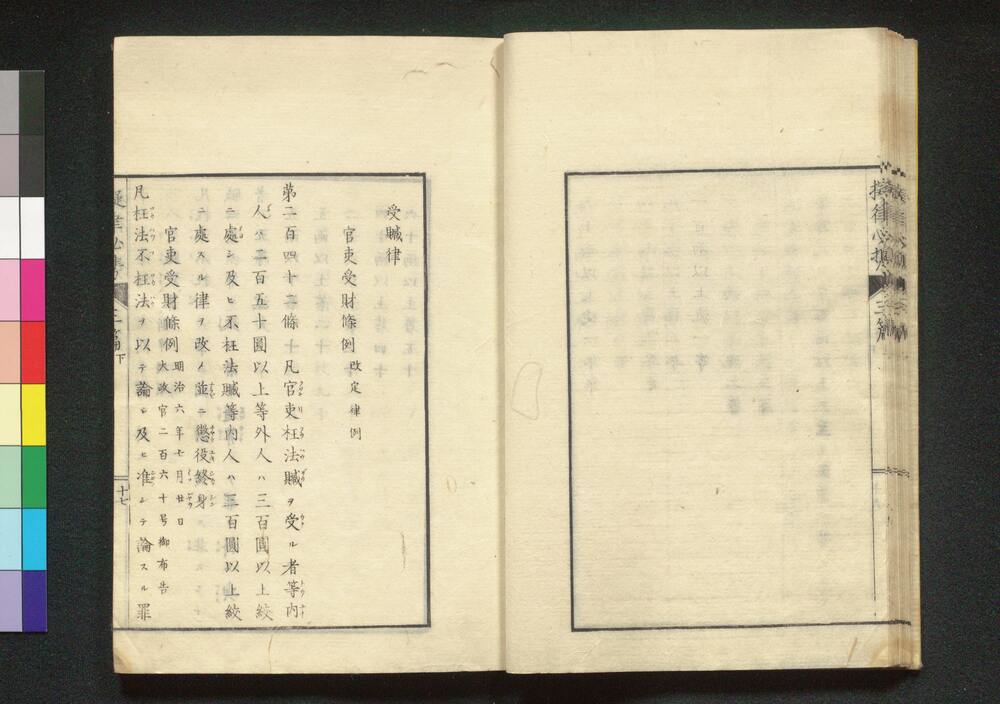 受贓律
官吏受財條例 改定律例
第二百四十三條 凡官吏枉法贓ヲ受ル者等内
人ハ二百五十圓以上等外人ハ三百圓以上絞
ニ處シ及ヒ不枉法贓等内人ハ三百圓以上絞
ニ處スル律ヲ改メ並ニ懲役終身
官吏受財條例 明治六年七月廿日
太政官二百六十号御布告
凡枉法不枉法ヲ以テ論シ及ヒ准シテ論スル罪
三篇下
十七
三篇